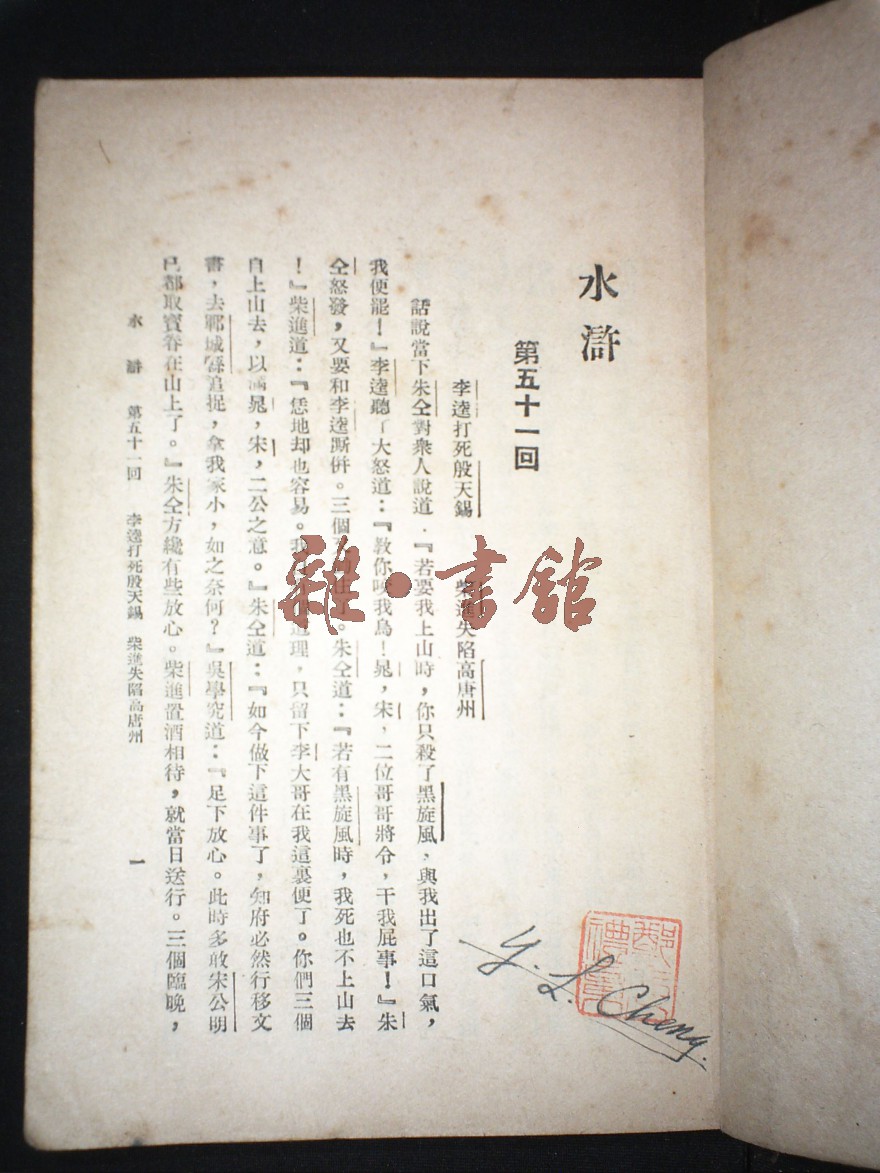 水滸
第五十一回
李逵打死殷天錫　柴進失陷高唐州
話說當下朱仝對衆人說道．『若要我上山時，你只殺了黑旋風，與我出了這口氣，
我便罷！』李逵聽了大怒道：『教你咬我鳥！晁，宋，二位哥哥將令，干我屁事！』朱
仝怒發，又要和李逵厮併。三個 。朱仝道：『若有黑旋風時，我死也不上山去
！』柴進道：『恁地却也容易。我 理，只留下李大哥在我這裏便了。你們三個
自上山去，以滿晁，宋，二公之意。』朱仝道：『如今做下這件事了，知府必然行移文
書，去鄆城縣追捉，拿我家小，如之奈何？』吳學究道：『足下放心。此時多敢宋公明
已都取寶眷在山上了。』朱仝方纔有些放心。柴進置酒相待，就當日送行。三個臨晚，
水滸　第五十一回　李逵打死殷天錫　柴進失陷高唐州　一
雜·書館
Y. L. Cheng.